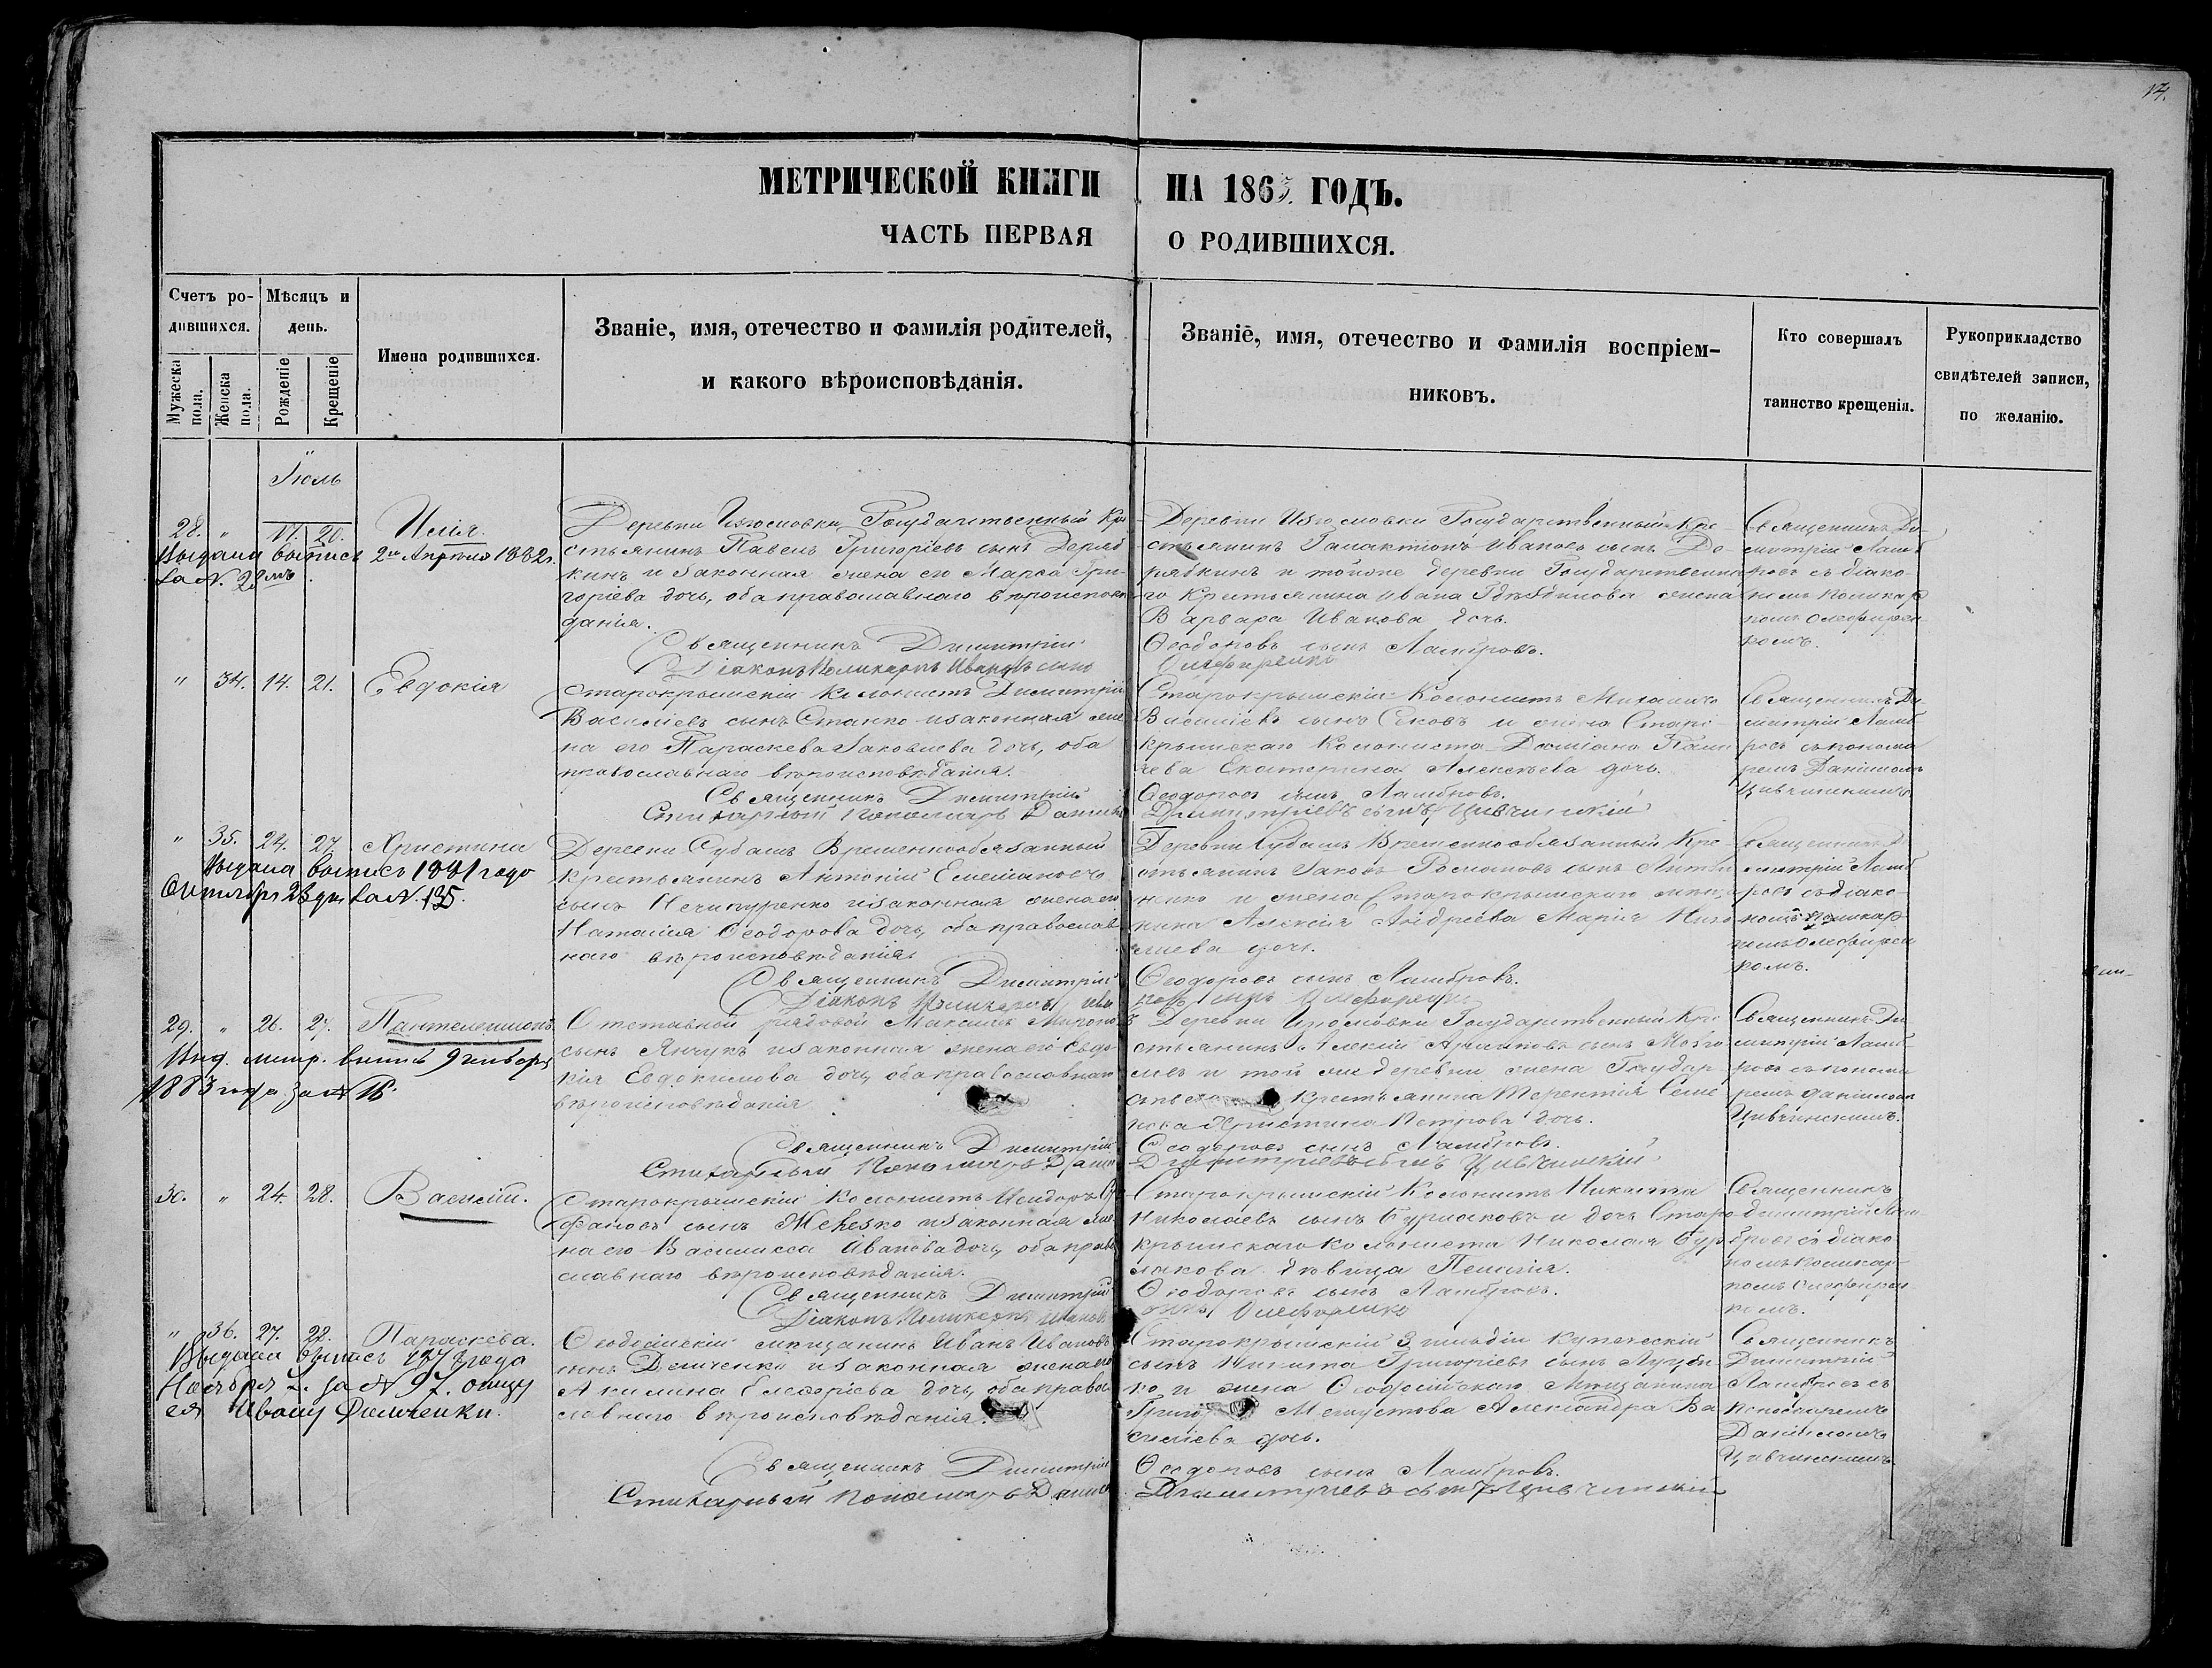 17.
МЕТРИЧЕСКОЙ КНИГИ НА 1863. ГОДЪ.
ЧАСТЬ ПЕРВАЯ О РОДИВШИХСЯ.
Счетъ ро-
дившихся.
Мужеска
пола.
Женска
пола.
Мѣсяцъ и
день.
Рожденіе
Крещеніе
Имена родившихся.
Званіе, имя, отечество и фамилія родителей,
и какого вѣроисповѣданія.
Званіе, имя, отечество и фамилія воспріем-
никовъ.
Кто совершалъ
таинство крещенія.
Рукоприкладство
свидѣтелей записи,
по желанію.
Іюль
28. " 17. 20. Илія.
Выдана выпись 2го Апреля 1882 г.
за N. 28мъ
Деревни Изюмовки Государственный Кре
стьянинъ Павелъ Григоріевъ сынъ Деряб
кинъ и законная жена его Марѳа Гри-
горіева дочь, оба православнаго вѣроисповѣ
данія.
Священникъ Димитрій
Діаконъ Поликарпъ Ивановъ сынъ
Деревни Изюмовки Государственный Кре-
стьянинъ Галактіонъ Ивановъ сынъ Де-
рябкинъ и тойже деревни Государственна
го Крестьянина Ивана жена
Варвара Иванова дочь.
Ѳеодоровъ сынъ Ламбровъ.
Олефиренко
Священникъ Ди
митрій Ламб
ровъ съ діако-
номъ Поликар
помъ Олефирен
комъ.
" 34. 14. 21. Евдокія
Старокрымскій Колонистъ Димитрій
Василіевъ сынъ Станко и законная же
на его Параскева Іаковлева дочь, оба
православнаго вѣроисповѣданія.
Священникъ Димитрій
Стихарный Пономарь Даніилъ
Старокрымскій Колонистъ Михаилъ
Василіевъ сынъ и жена Старо-
крымскаго Колониста Даміана
Екатерина Алексѣева дочь.
Ѳеодоровъ сынъ Ламбровъ.
Димитріевъ сынъ Цивчинскій
Священникъ Ди
митрій Ламб
ровъ съ понома
ремъ Даніиломъ
Цивчинскимъ
" 35. 24. 27. Христина
Выдана выпись 1881 года
Октября 23 дня за N. 135.
Деревни Субашъ Временнообязанный
крестьянинъ Антоній Емеліановъ
сынъ Нечипуренко и законная жена его
Наталія Ѳеодорова дочь, оба православ
наго вѣроисповѣданія
Священникъ Димитрій
Діаконъ Поликарпъ Ива
Деревни Субашъ Временнообязанный Кре-
стьянинъ Іаковъ Романовъ сынъ
ненко и жена Старокрымскаго мѣща
нина Алексія Андреева Марія
дочь.
Ѳеодоровъ сынъ Ламбровъ.
новъ сынъ Олефиренко
Священникъ Ди
митрій Ламб
ровъ съ діако-
номъ Поликар
помъ Олефирен
комъ.
29. " 26. 27. Пантелеимонъ.
Выд. метр. выпись 9 генваря
1883 года за № 16.
Отставной рядовой Максимъ Мироно
сынъ Янчукъ и законная жена его Евдо-
кія Евдокимова дочь, оба православнаго
вѣроисповѣданія
Священникъ Димитрій
Стихарный Пономарь Даніи
Деревни Изюмовки Государственный Кре-
стьянинъ Алексій сынъ
и той же деревни жена Государ
Крестьянина Терентія
Христина Петрова дочь.
Ѳеодоровъ сынъ Ламбровъ.
Димитріевъ сынъ Цивчинскій
Священникъ Ди
митрій Ламб-
ровъ съ понома
ремъ Даніиломъ
Цивчинскимъ.
30. " 24. 28. Василій.
Старокрымскій Колонистъ Исидоръ
сынъ и законная же
на его Василисса Иванова дочь, оба право
славнаго вѣроисповѣданія.
Священникъ Димитрій
Діаконъ Поликарпъ Ивановъ
Старокрымскій Колонистъ Никита
Николаевъ сынъ Бурлаковъ и дочь Старо-
крымскаго Колониста Николая Бур
лакова дѣвица Пелагія.
Ѳеодоровъ сынъ Ламбровъ.
сынъ Олефиренко
Священникъ
Димитрій Лам-
бровъ съ діако
номъ Поликар-
помъ Олефирен-
комъ.
" 36. 27. 28. Параскева.
Выдана выпись года
Ноября 2. за № 97. отцу
ея Ивану Демченки.
Ѳеодосійскій мѣщанинъ Иванъ Ивановъ
сынъ Демченко и законная жена его
Акилина Елефоріева дочь, оба право
славнаго вѣроисповѣданія.
Священникъ Димитрій
Стихарный Пономарь Даніил
Старокрымскій 3 гильдіи Купеческій
сынъ Никита Григоріевъ сынъ
ко и жена Ѳеодосійскаго Мѣщанина
Александра Ва
силіева дочь.
Ѳеодоровъ сынъ Ламбровъ.
Димитріевъ сынъ Цивчинскій
Священникъ
Димитрій
Ламбровъ съ
Пономаремъ
Даніиломъ
Цивчинскимъ